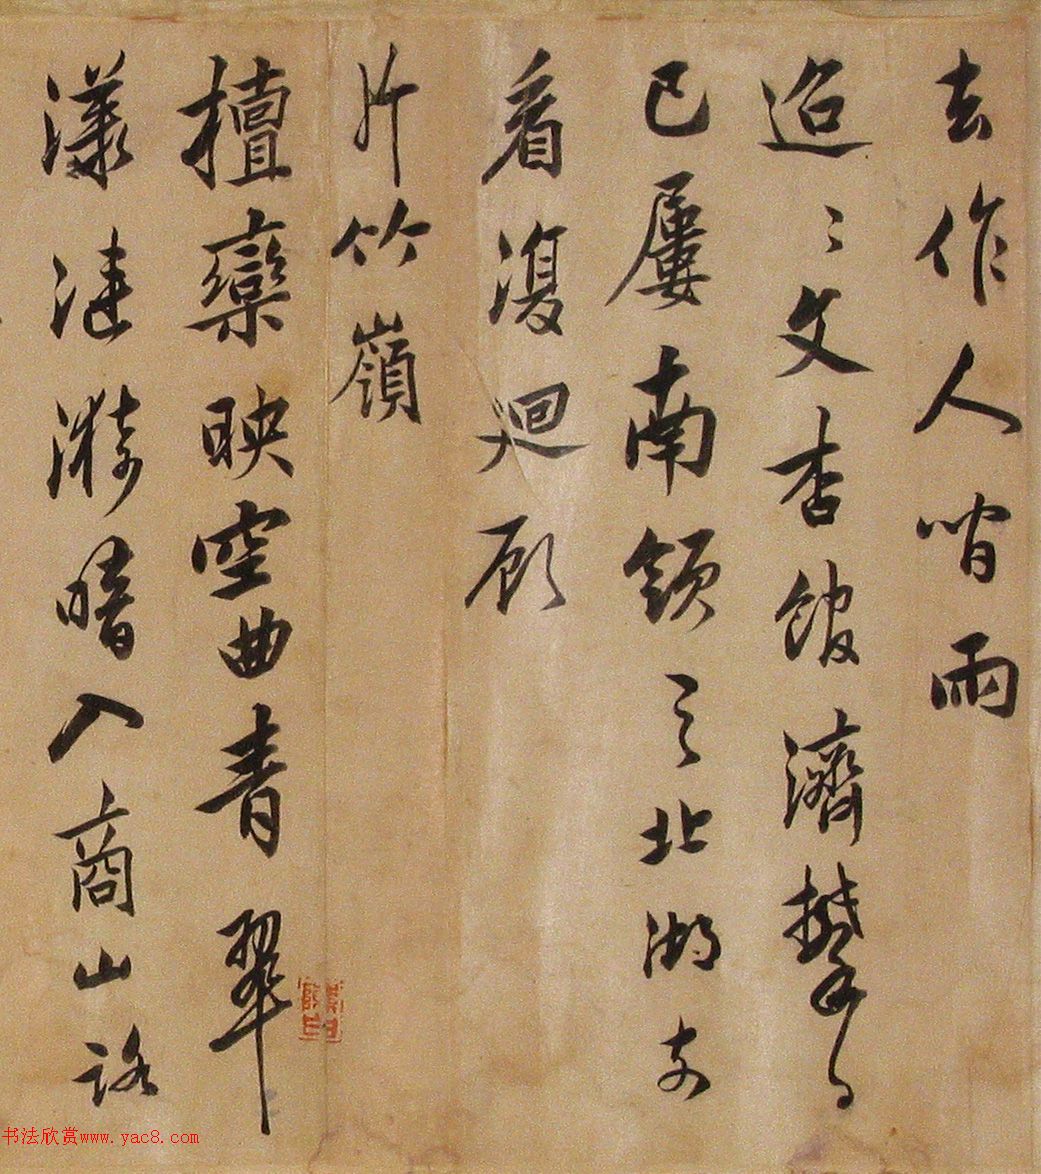 去作人間雨
迢〻文杏館濟攀日
已屢南領與北湖前
看復迴顧
斤竹嶺
檀欒映空曲青翠
漾漣漪暗入商山路
书法欣赏www.yac8.com